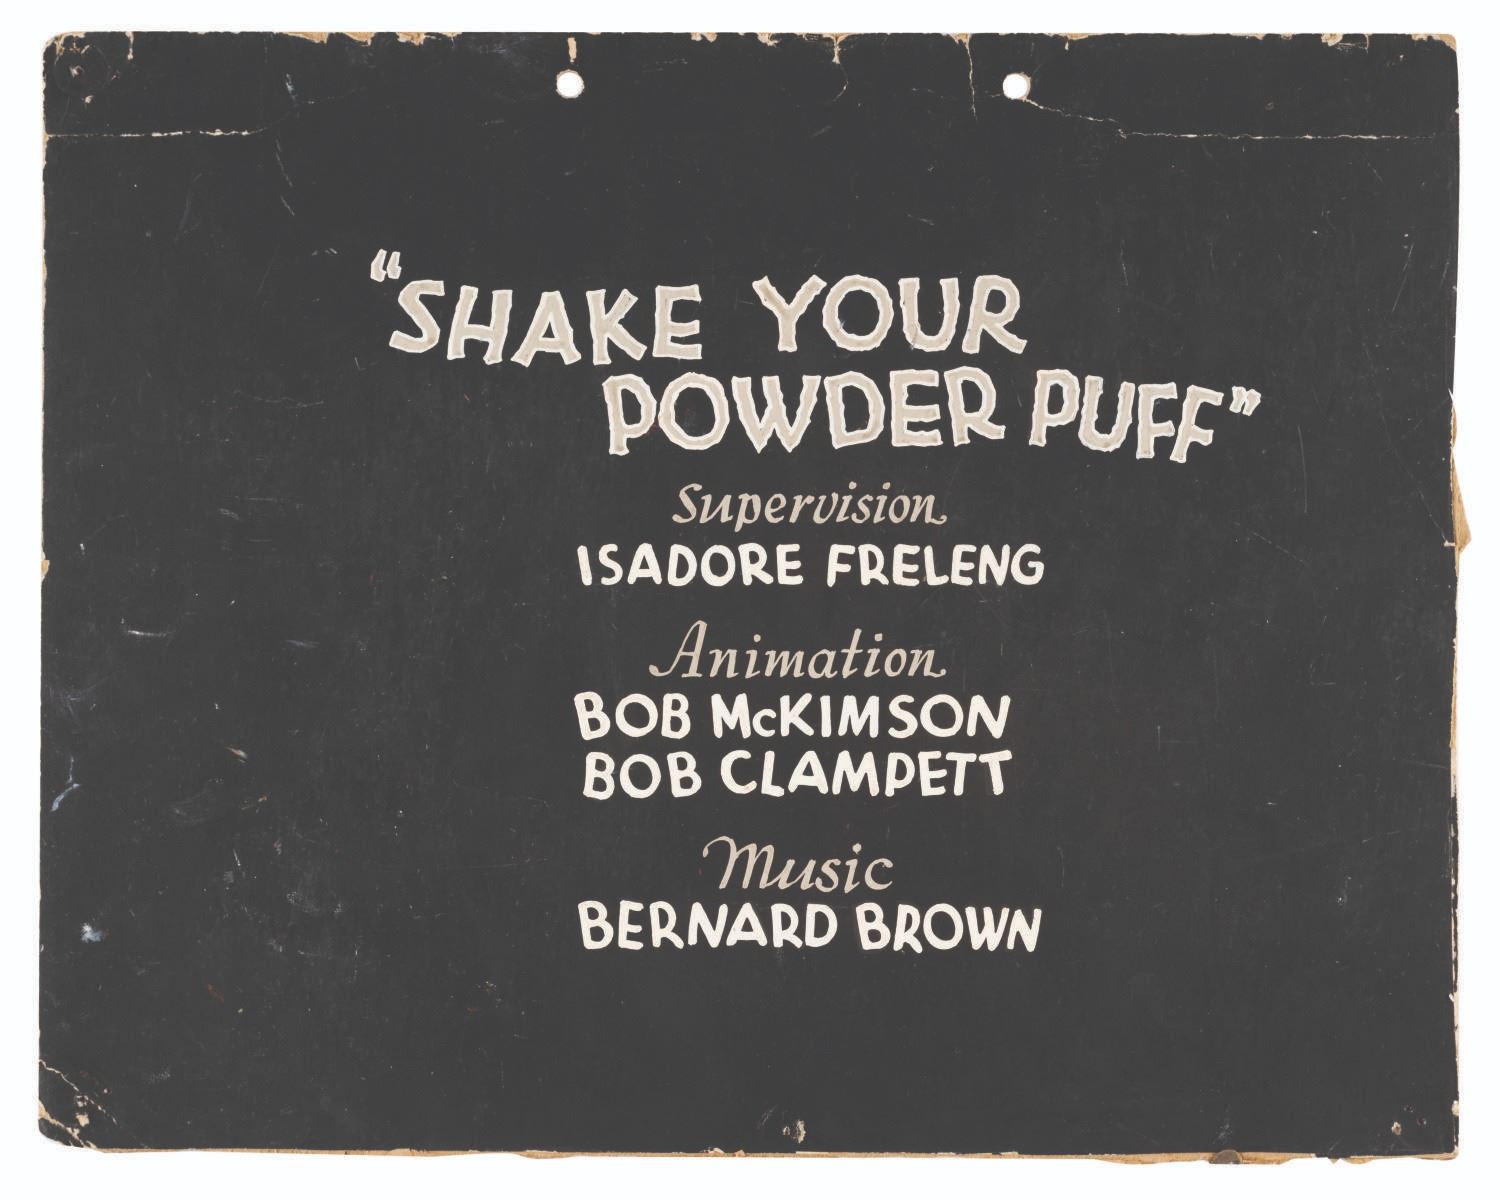 “SHAKE YOUR
POWDER PUFF”
Supervision
ISADORE FRELENG
Animation
BOB McKIMSON
BOB CLAMPETT
Music
BERNARD BROWN